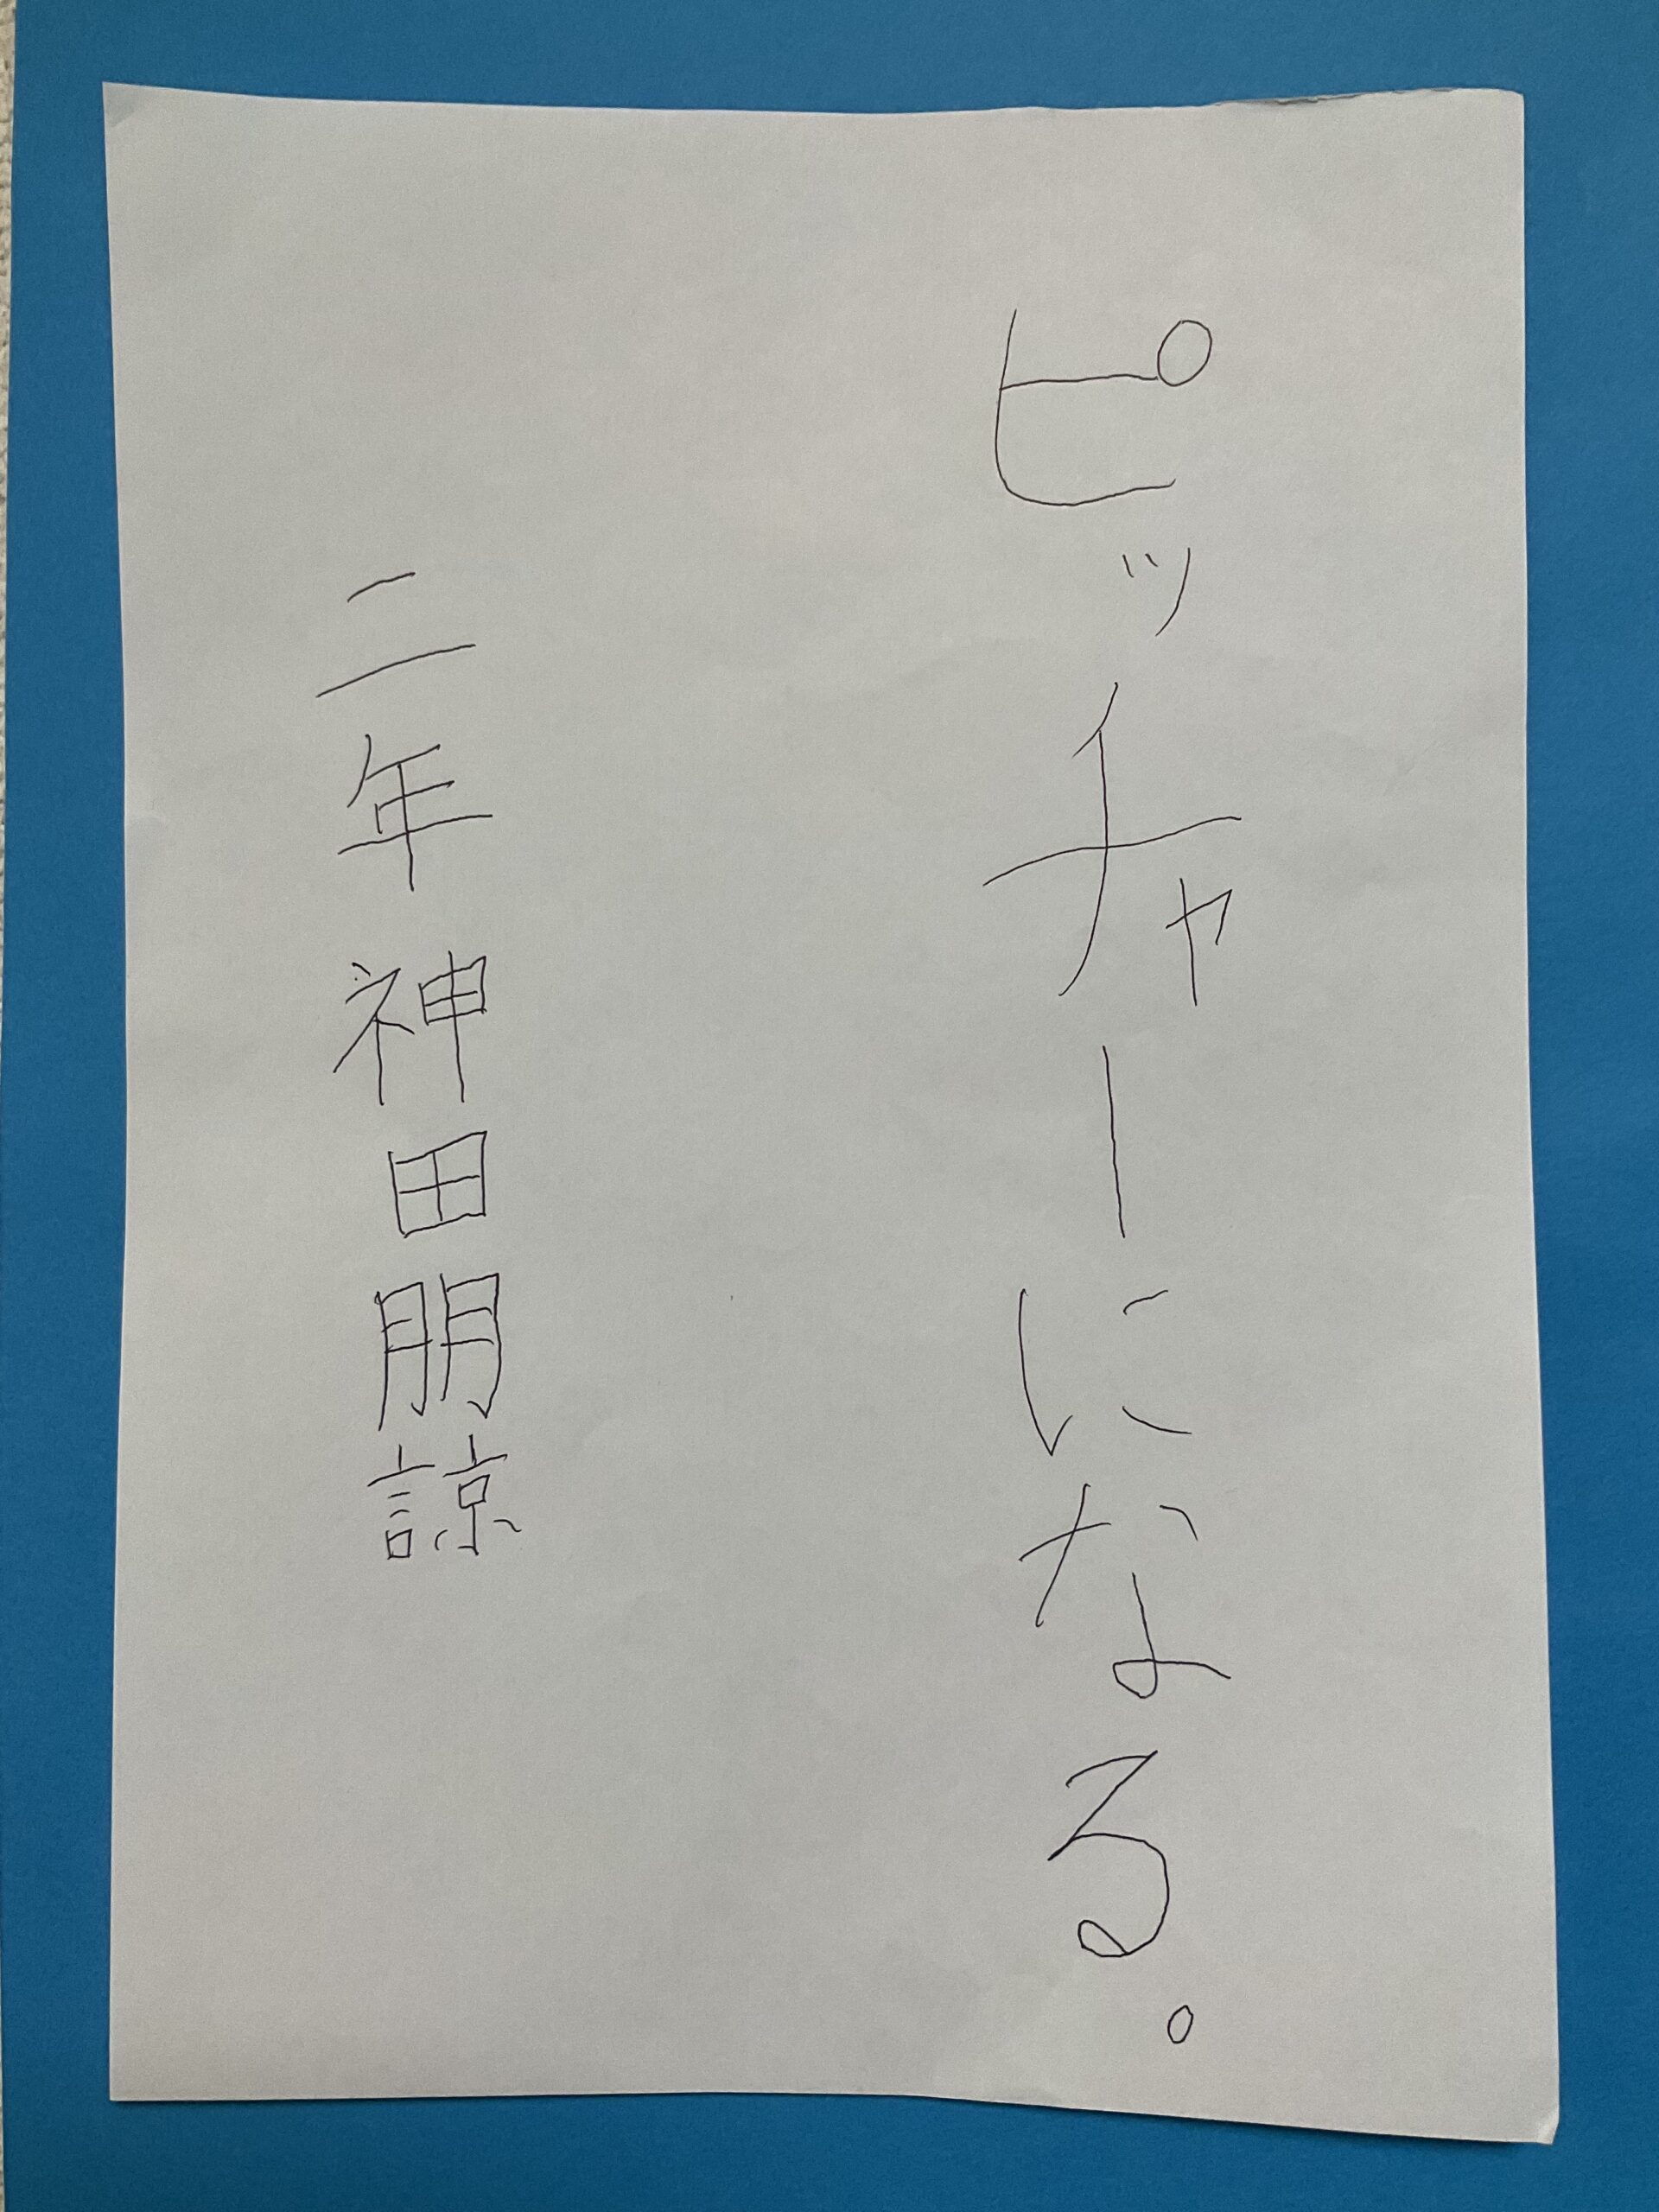 ピッチャーになる。
二年 神田朋諒